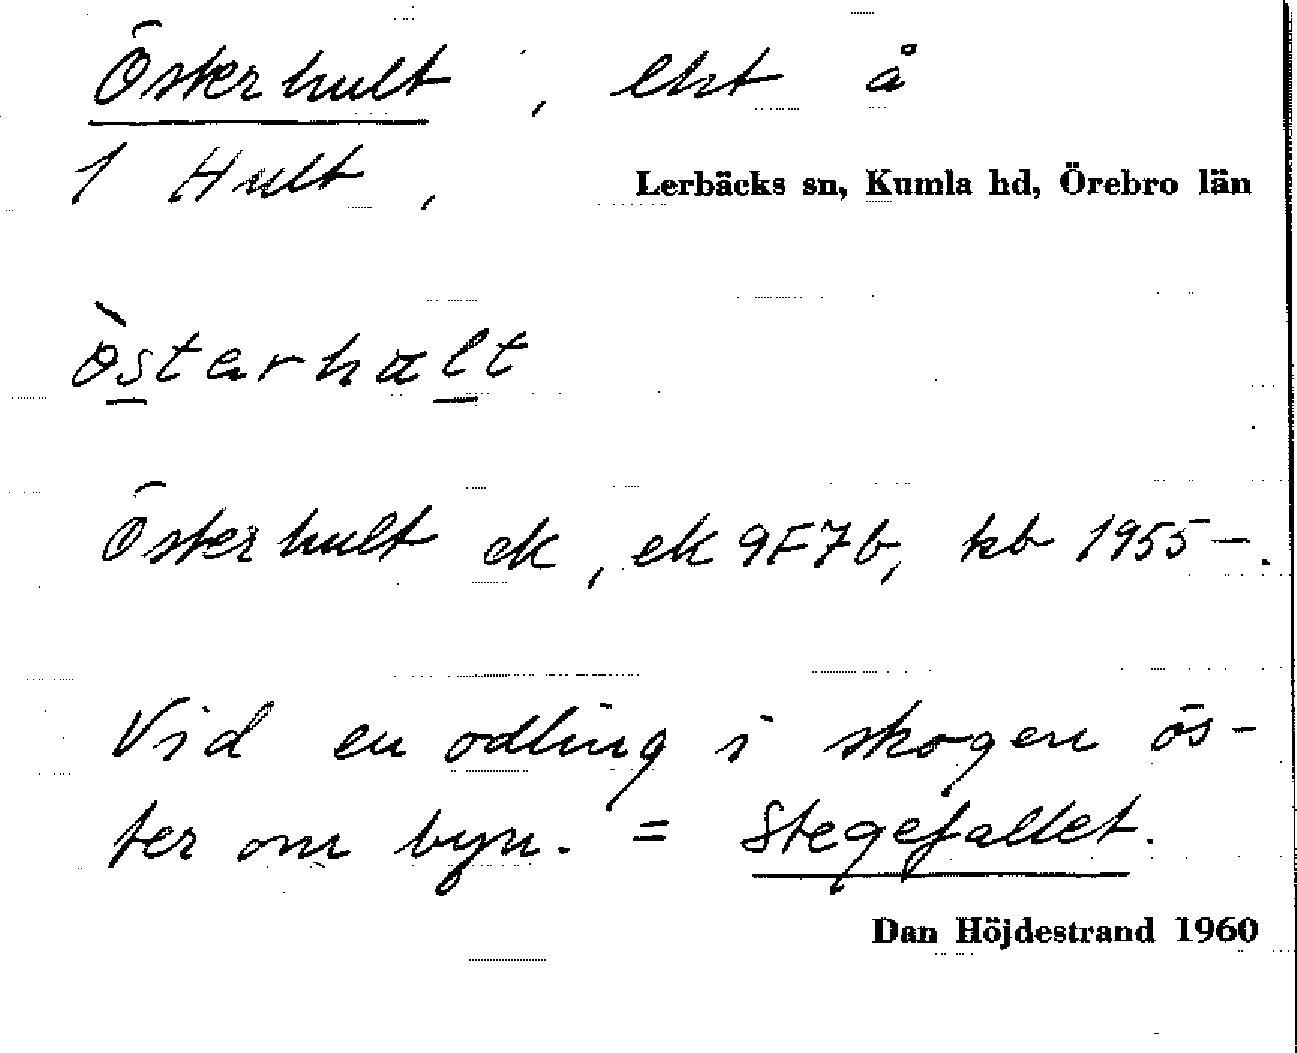 Österhult, lht å
1 Hult,
Lerbäcks sn, Kumla hd, Örebro län
òstarhalt
Österhult ek, ek 9F7b, kb 1955–.
Vid en odling i skogen ös-
ter om byn. = Stegefallet.
Dan Höjdestrand 1960